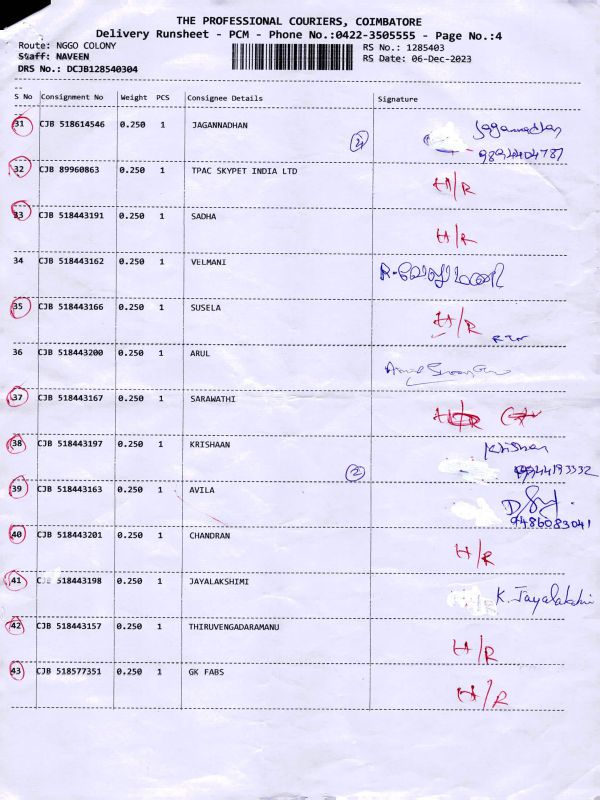 THE PROFESSIONAL COURIERS, COIMBATORE
Delivery Runsheet - PCM - Phone No.:0422-3505555 - Page No.:4
Route: NGGO COLONY RS No.: 1285403
Staff: NAVEEN RS Date: 06-Dec-2023
DRS No.: DCJB128540304
S No Consignment No Weight PCS Consignee Details Signature
31 CJB 518614546 0.250 1 JAGANNADHAN Jagannadhan
9894404787
32 CJB 89960863 0.250 1 TPAC SKYPET INDIA LTD H/R
33 CJB 518443191 0.250 1 SADHA H/R
34 CJB 518443162 0.250 1 VELMANI
35 CJB 518443166 0.250 1 SUSELA H/R
36 CJB 518443200 0.250 1 ARUL
37 CJB 518443167 0.250 1 SARAWATHI
38 CJB 518443197 0.250 1 KRISHAAN Krishnan
2
39 CJB 518443163 0.250 1 AVILA
9486083041
40 CJB 518443201 0.250 1 CHANDRAN H/R
41 CJB 518443198 0.250 1 JAYALAKSHIMI K. Jayalakshmi
42 CJB 518443157 0.250 1 THIRUVENGADARAMANU H/R
43 CJB 518577351 0.250 1 GK FABS H/R